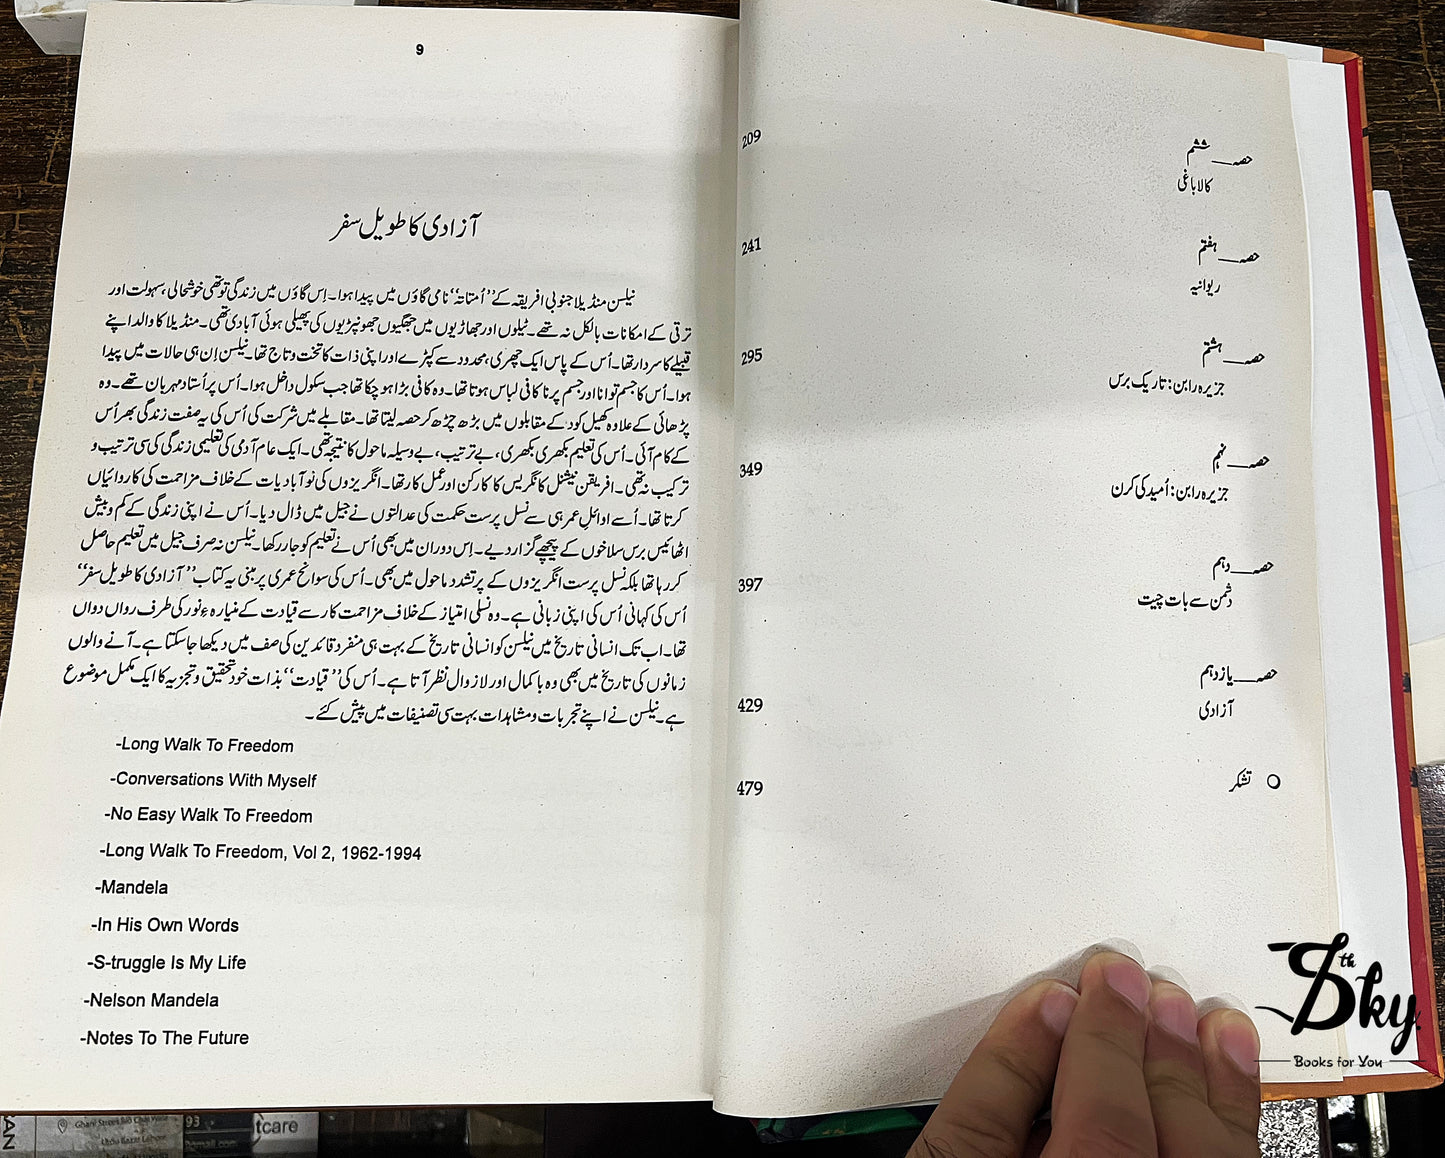 209
حصہ ششم
کالا باغی
241
حصہ ہفتم
ریوانیہ
295
حصہ ہشتم
جزیرہ رابن: تاریک برس
349
حصہ نہم
جزیرہ رابن: اُمید کی کرن
397
حصہ دہم
دشمن سے بات چیت
429
حصہ یازدہم
آزادی
479
تشکر
9
آزادی کا طویل سفر
نیلسن منڈیلا جنوبی افریقہ کے ’’اُمتاتہ‘‘ نامی گاؤں میں پیدا ہوا۔ اِس گاؤں میں زندگی تو تھی خوشحالی، سہولت اور
ترقی کے امکانات بالکل نہ تھے۔ ٹیلوں اور جھاڑیوں میں جھگیوں جھونپڑیوں کی پھیلی ہوئی آبادی تھی۔ منڈیلا کا والد اپنے
قبیلے کا سردار تھا۔ اُس کے پاس ایک چھری، محدود سے کپڑے اور اپنی ذات کا تخت و تاج تھا۔ نیلسن اِن ہی حالات میں پیدا
ہوا۔ اُس کا جسم توانا اور جسم پر ناکافی لباس ہوتا تھا۔ وہ کافی بڑا ہو چکا تھا جب سکول داخل ہوا۔ اُس پر اُستاد مہربان تھے۔ وہ
پڑھائی کے علاوہ کھیل کود کے مقابلوں میں بڑھ چڑھ کر حصہ لیتا تھا۔ مقابلے میں شرکت کی اُس کی یہ صفت زندگی بھر اُس
کے کام آئی۔ اُس کی تعلیم بکھری بکھری، بے ترتیب، بے وسیلہ ماحول کا نتیجہ تھی۔ ایک عام آدمی کی تعلیمی زندگی کی سی ترتیب و
ترکیب نہ تھی۔ افریقن نیشنل کانگریس کا کارکن اور عمل کار تھا۔ انگریزوں کی نوآبادیات کے خلاف مزاحمت کی کاروائیاں
کرتا تھا۔ اُسے اوائلِ عمر ہی سے نسل پرست حکمت کی عدالتوں نے جیل میں ڈال دیا۔ اُس نے اپنی زندگی کے کم و بیش
اٹھائیس برس سلاخوں کے پیچھے گزار دیے۔ اِس دوران میں بھی اُس نے تعلیم کو جار رکھا۔ نیلسن نہ صرف جیل میں تعلیم حاصل
کر رہا تھا بلکہ نسل پرست انگریزوں کے پر تشدد ماحول میں بھی۔ اُس کی سوانح عمری پر مبنی یہ کتاب ’’آزادی کا طویل سفر‘‘
اُس کی کہانی اُس کی اپنی زبانی ہے۔ وہ نسلی امتیاز کے خلاف مزاحمت کار سے قیادت کے مینارہءِ نور کی طرف رواں دواں
تھا۔ اب تک انسانی تاریخ میں نیلسن کو انسانی تاریخ کے بہت ہی منفرد قائدین کی صف میں دیکھا جاسکتا ہے۔ آنے والوں
زمانوں کی تاریخ میں بھی وہ باکمال اور لازوال نظر آتا ہے۔ اُس کی ’’قیادت‘‘ بذات خود تحقیق و تجزیہ کا ایک مکمل موضوع
ہے۔ نیلسن نے اپنے تجربات و مشاہدات بہت سی تصنیفات میں پیش کئے۔
-Long Walk To Freedom
-Conversations With Myself
-No Easy Walk To Freedom
-Long Walk To Freedom, Vol 2, 1962-1994
-Mandela
-In His Own Words
-S-truggle Is My Life
-Nelson Mandela
-Notes To The Future
Sky
Books for You